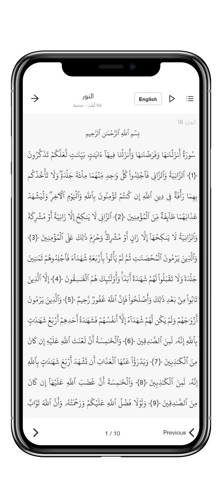 النور
English
بِسْمِ ٱللَّهِ ٱلرَّحْمَٰنِ ٱلرَّحِيمِ
سُورَةٌ أَنزَلْنَٰهَا وَفَرَضْنَٰهَا وَأَنزَلْنَا فِيهَآ ءَايَٰتٍۭ بَيِّنَٰتٍ لَّعَلَّكُمْ تَذَكَّرُونَ
-(1)- ٱلزَّانِيَةُ وَٱلزَّانِى فَٱجْلِدُوا۟ كُلَّ وَٰحِدٍ مِّنْهُمَا مِا۟ئَةَ جَلْدَةٍ ۖ وَلَا تَأْخُذْكُم
بِهِمَا رَأْفَةٌ فِى دِينِ ٱللَّهِ إِن كُنتُمْ تُؤْمِنُونَ بِٱللَّهِ وَٱلْيَوْمِ ٱلْءَاخِرِ ۖ وَلْيَشْهَدْ
عَذَابَهُمَا طَآئِفَةٌ مِّنَ ٱلْمُؤْمِنِينَ -(2)- ٱلزَّانِى لَا يَنكِحُ إِلَّا زَانِيَةً أَوْ مُشْرِكَةً
وَٱلزَّانِيَةُ لَا يَنكِحُهَآ إِلَّا زَانٍ أَوْ مُشْرِكٌ ۚ وَحُرِّمَ ذَٰلِكَ عَلَى ٱلْمُؤْمِنِينَ -(3)-
وَٱلَّذِينَ يَرْمُونَ ٱلْمُحْصَنَٰتِ ثُمَّ لَمْ يَأْتُوا۟ بِأَرْبَعَةِ شُهَدَآءَ فَٱجْلِدُوهُمْ ثَمَٰنِينَ
جَلْدَةً وَلَا تَقْبَلُوا۟ لَهُمْ شَهَٰدَةً أَبَدًا ۚ وَأُو۟لَٰٓئِكَ هُمُ ٱلْفَٰسِقُونَ -(4)- إِلَّا ٱلَّذِينَ
تَابُوا۟ مِنۢ بَعْدِ ذَٰلِكَ وَأَصْلَحُوا۟ فَإِنَّ ٱللَّهَ غَفُورٌ رَّحِيمٌ -(5)- وَٱلَّذِينَ يَرْمُونَ
أَزْوَٰجَهُمْ وَلَمْ يَكُن لَّهُمْ شُهَدَآءُ إِلَّآ أَنفُسُهُمْ فَشَهَٰدَةُ أَحَدِهِمْ أَرْبَعُ شَهَٰدَٰتٍۭ
بِٱللَّهِ ۙ إِنَّهُۥ لَمِنَ ٱلصَّٰدِقِينَ -(6)- وَٱلْخَٰمِسَةُ أَنَّ لَعْنَتَ ٱللَّهِ عَلَيْهِ إِن كَانَ
مِنَ ٱلْكَٰذِبِينَ -(7)- وَيَدْرَؤُا۟ عَنْهَا ٱلْعَذَابَ أَن تَشْهَدَ أَرْبَعَ شَهَٰدَٰتٍۭ بِٱللَّهِ ۙ
إِنَّهُۥ لَمِنَ ٱلْكَٰذِبِينَ -(8)- وَٱلْخَٰمِسَةَ أَنَّ غَضَبَ ٱللَّهِ عَلَيْهَآ إِن كَانَ
مِنَ ٱلصَّٰدِقِينَ -(9)- وَلَوْلَا فَضْلُ ٱللَّهِ عَلَيْكُمْ وَرَحْمَتُهُۥ وَأَنَّ ٱللَّهَ تَوَّابٌ
1 / 10
Previous